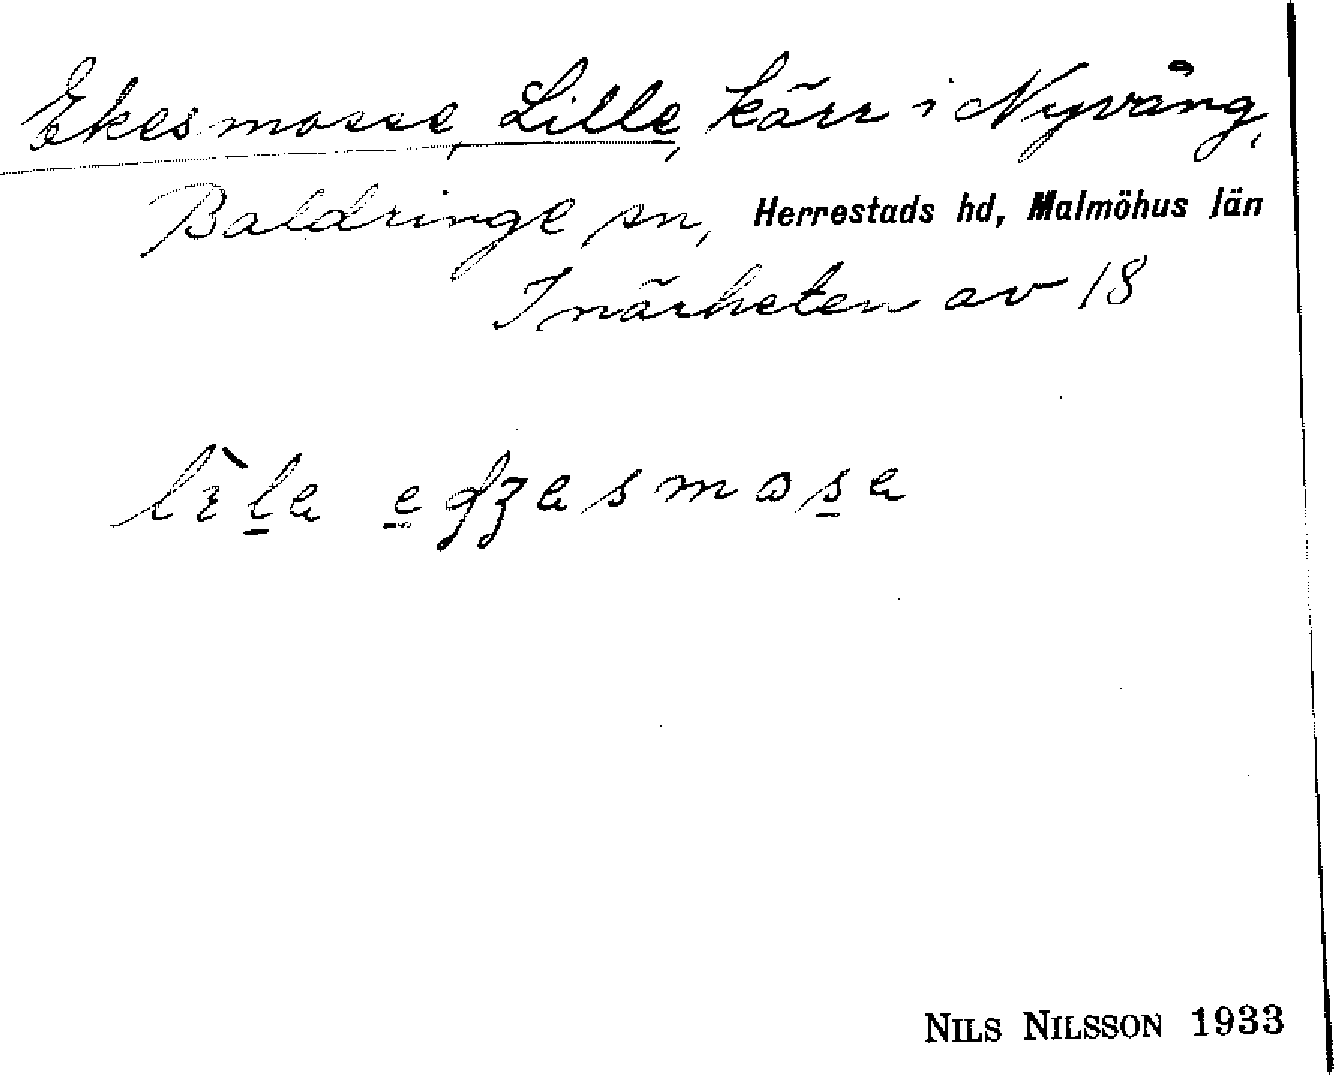 Ekesmosse, Lille, kärr i Nyvång,
Baldringe sn, Herrestads hd, Malmöhus län
I närheten av 18
NILS NILSSON 1933